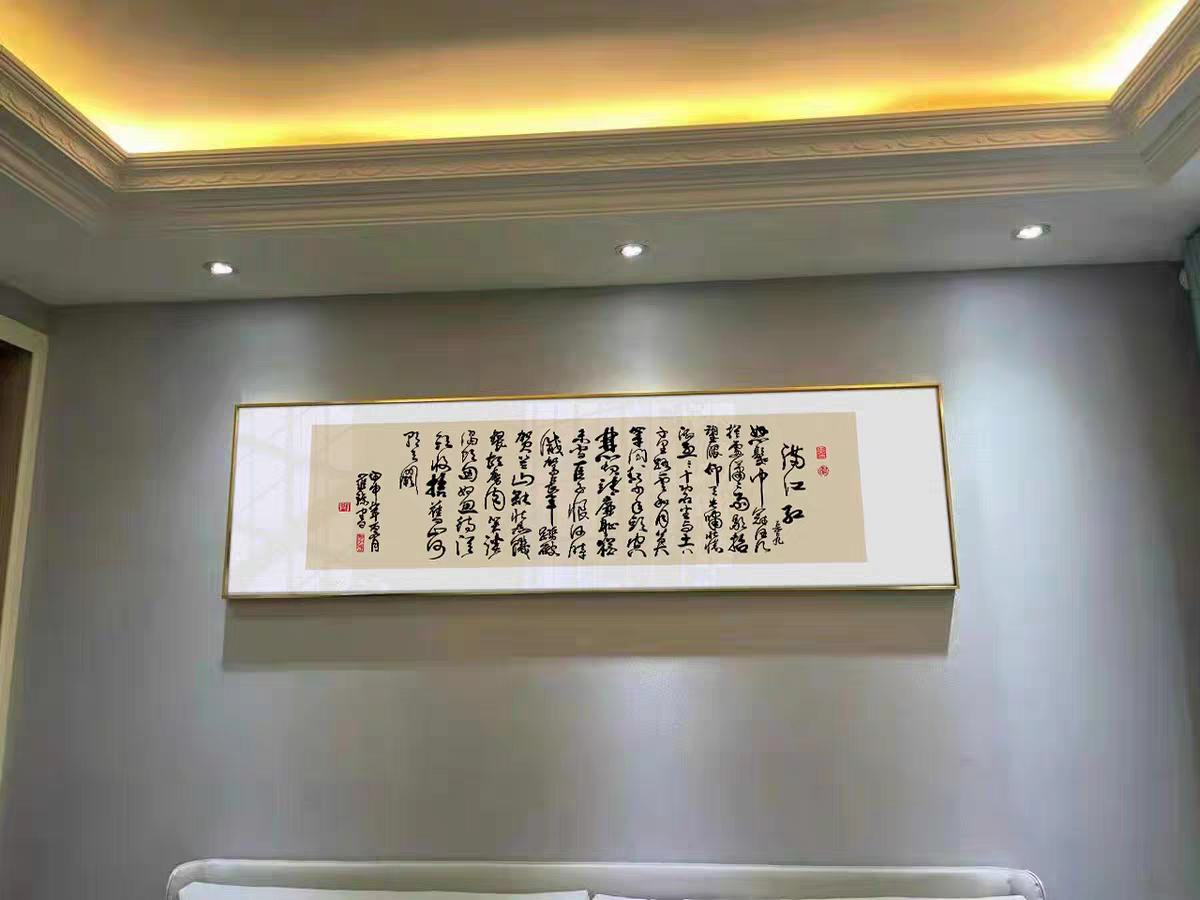 满江红
岳飞
怒髮冲冠凭
阑處潇潇雨歇抬
望眼仰天长啸壮怀
激烈三十功名尘与土八
千里路雲和月莫
等闲白了少年头空
悲切靖康耻猶
未雪臣子恨何時
滅驾長車踏破
贺兰山缺壮志饥
餐胡虏肉笑谈
渴饮匈奴血待从
头收拾舊山河
朝天阙
甲申年
書